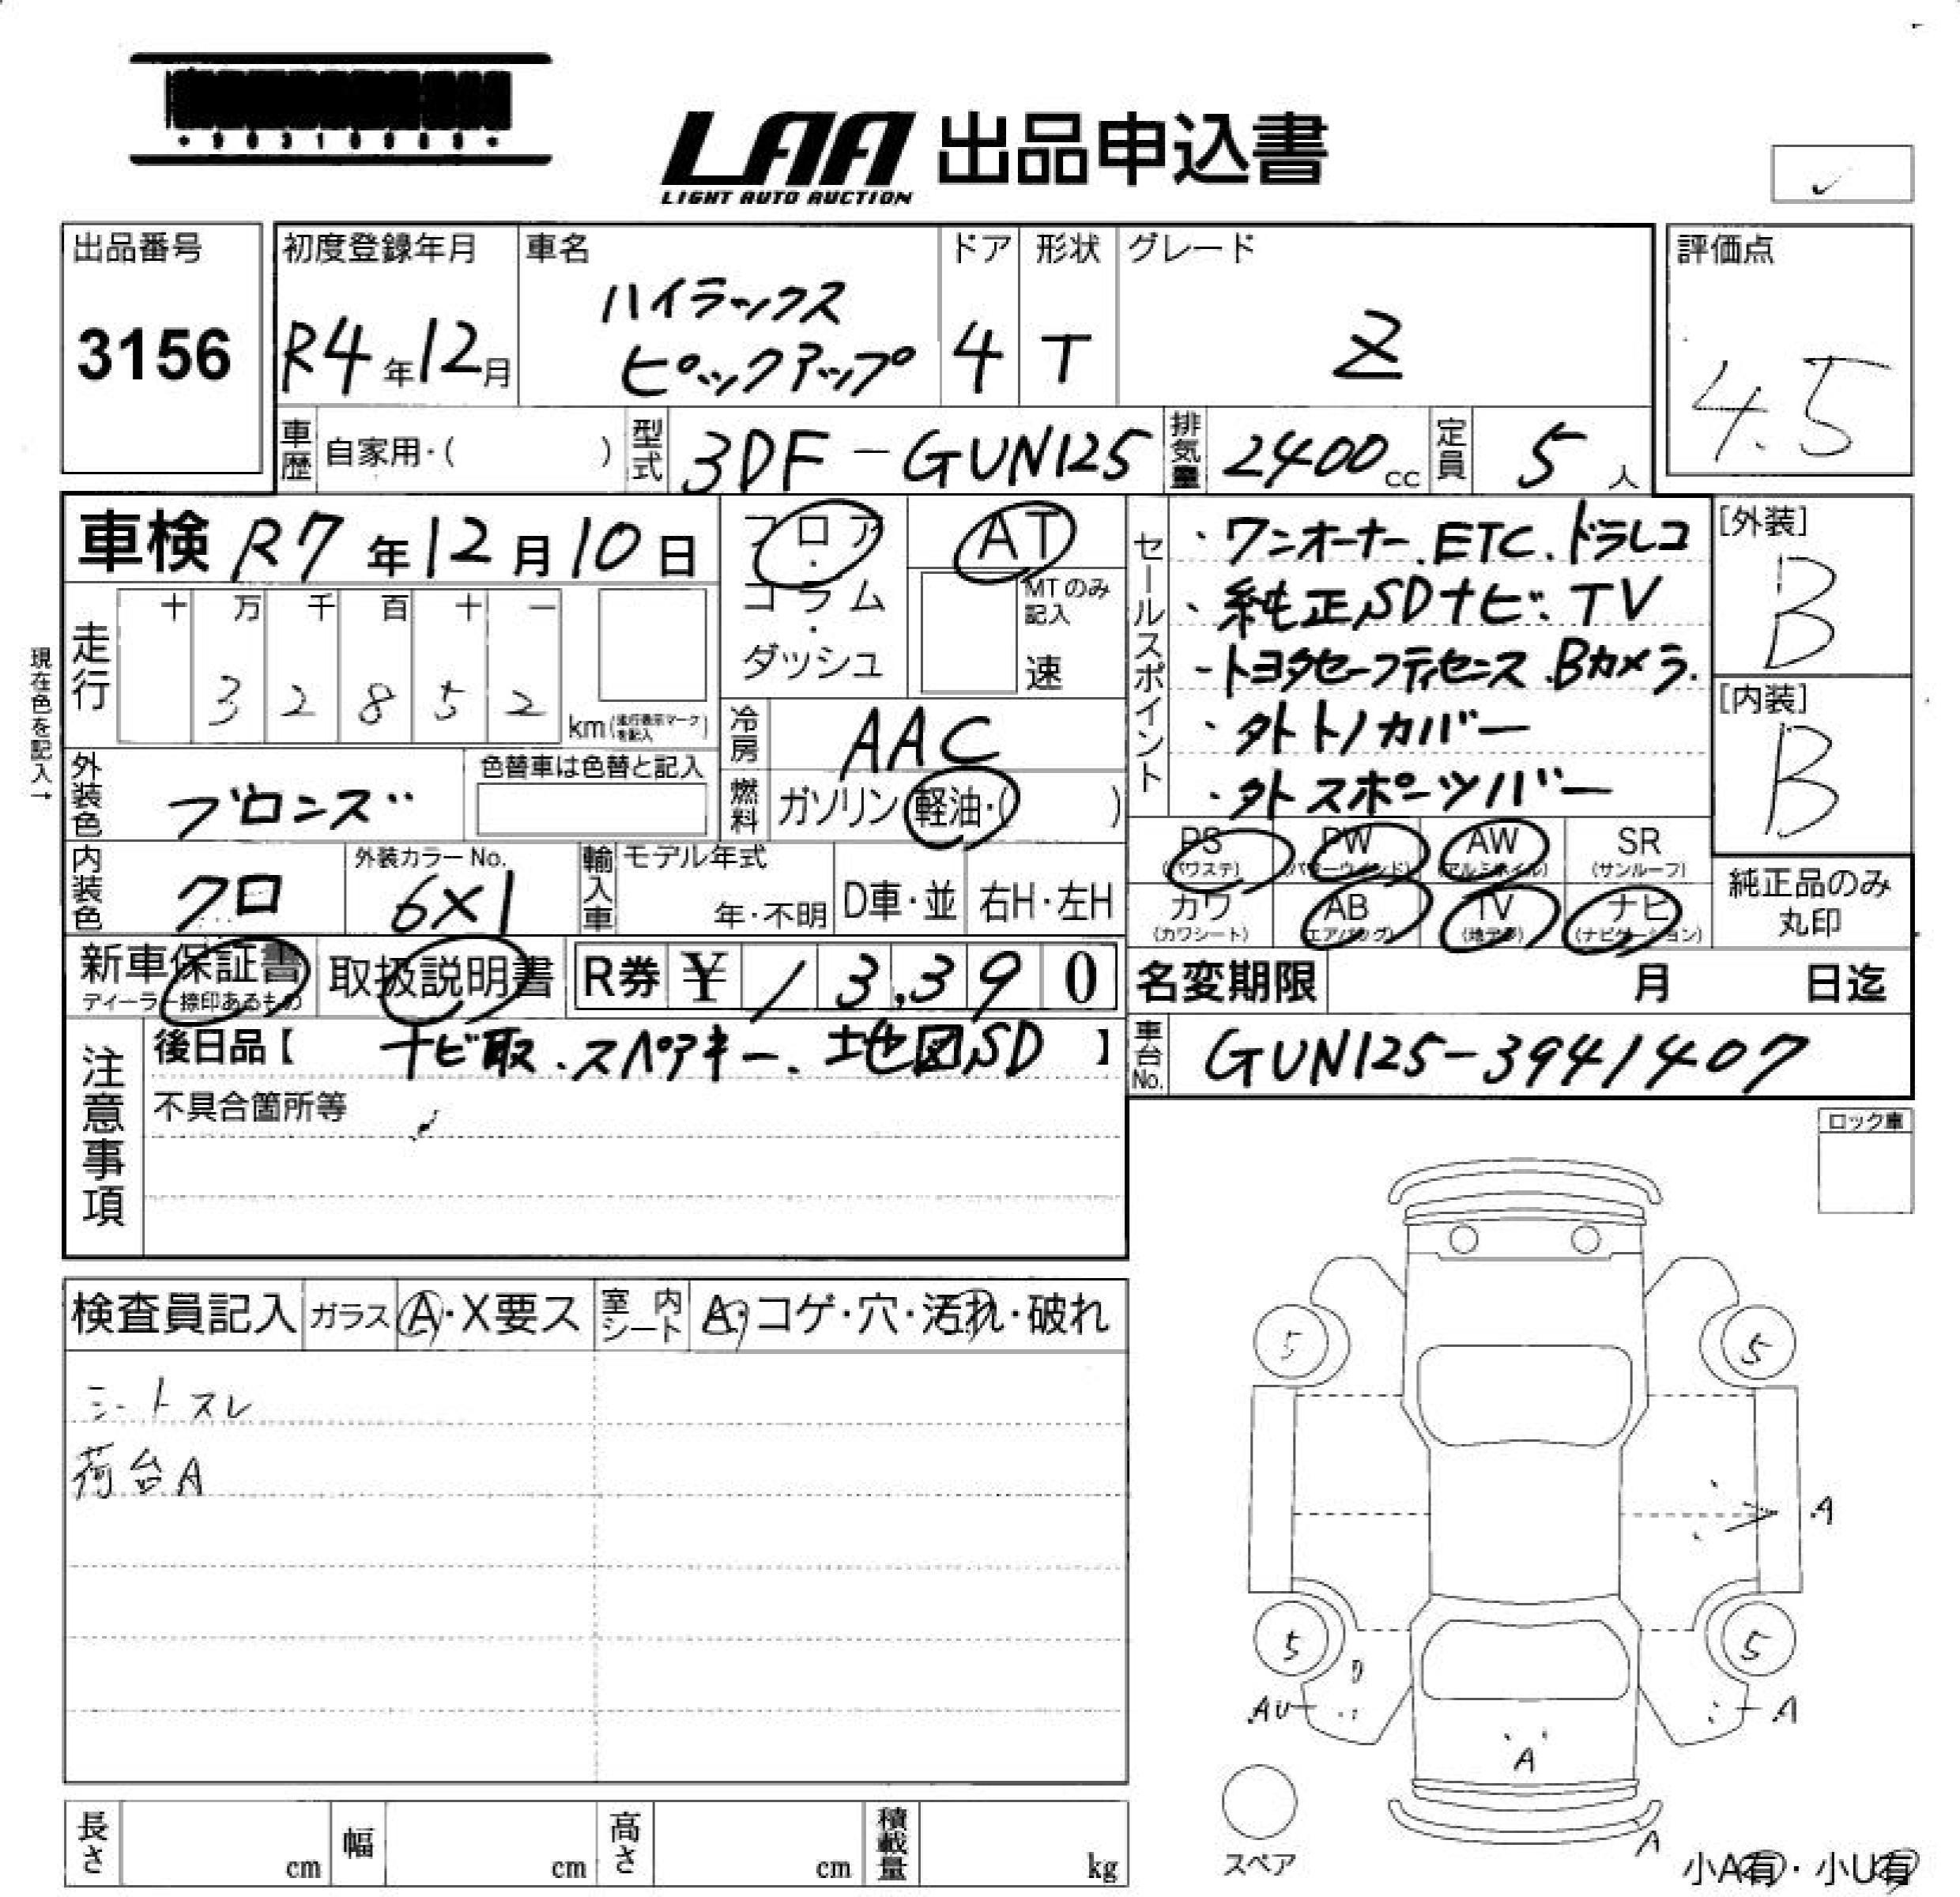 LAA 出品申込書
LIGHT AUTO AUCTION
出品番号
3156
初度登録年月
R4年12月
車名
ハイラックス
ピックアップ
ドア
4
形状
T
グレード
Z
評価点
4.5
車歴 自家用・( )
型式 3DF-GUN125
排気量 2400cc
定員 5人
車検 R7年12月10日
現在色を記入→
走行
十 万 千 百 十 一
3 2 8 5 2
km(走行表示マークを記入)
フロア・コラム・ダッシュ
AT
MTのみ記入
速
冷房 AAC
燃料 ガソリン・軽油・( )
外装色 ブロンズ
色替車は色替と記入
内装色 クロ
外装カラーNo.
6X1
輸入車
モデル年式
年・不明
D車・並
右H・左H
セールスポイント
・ワンオーナー.ETC.ドラレコ
・純正SDナビ.TV
・トヨタセーフティセンス.Bカメラ.
・外トノカバー
・外スポーツバー
[外装]
B
[内装]
B
PS (パワステ)
PW (パワーウインド)
AW (アルミホイル)
SR (サンルーフ)
カワ (カワシート)
AB (エアバッグ)
TV (地デジ)
ナビ (ナビゲーション)
純正品のみ
丸印
新車保証書
ディーラー捺印あるもの
取扱説明書
R券 ¥ 13,390
名変期限 月 日迄
車台No. GUN125-3941407
注意事項
後日品【 ナビ取.スペアキー.地図SD 】
不具合箇所等
ロック車
検査員記入
ガラス A・X要ス
室内シート A・コゲ・穴・汚れ・破れ
シートスレ
荷台A
5
5
A
5
5
AU
A
A
A
スペア
小A有・小U有
長さ cm
幅 cm
高さ cm
積載量 kg